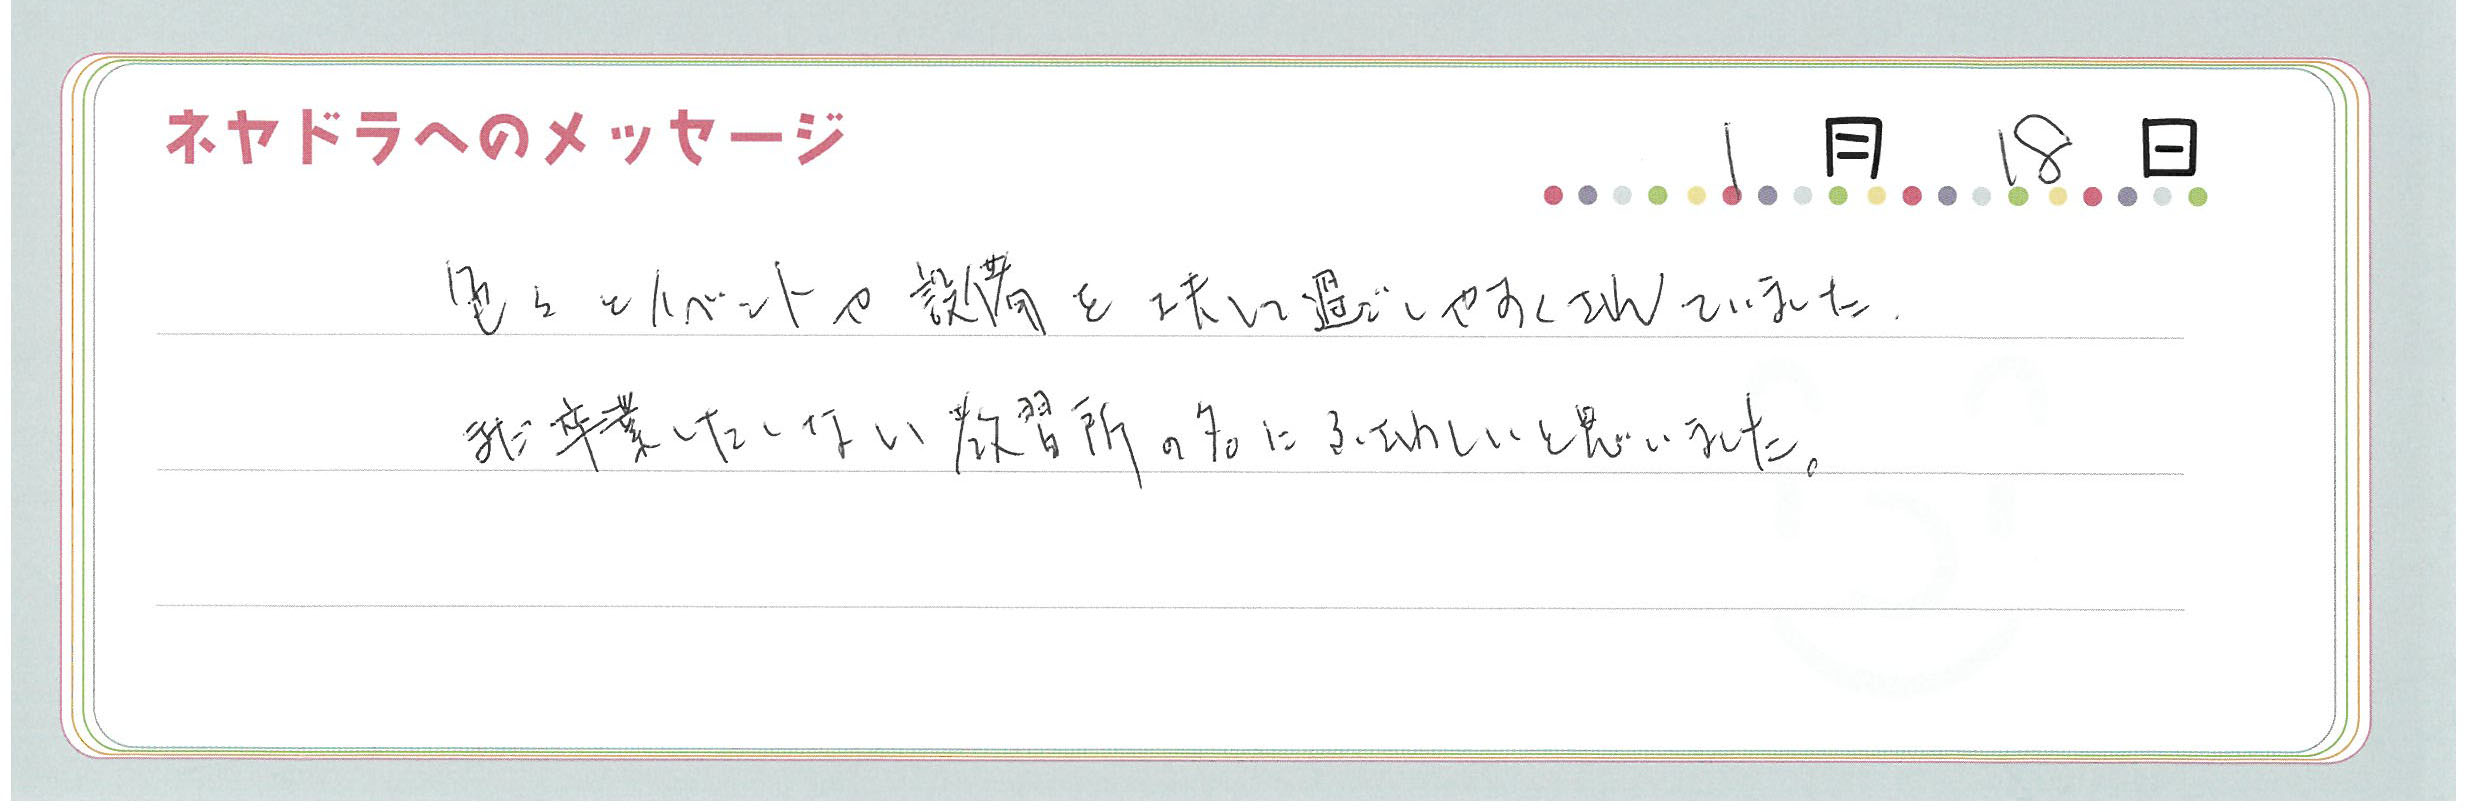 ネヤドラへのメッセージ
1月 18日
色々とイベントや設備を工夫して過ごしやすくされていました.
まだ卒業したくない教習所の名にふさわしいと思いました。